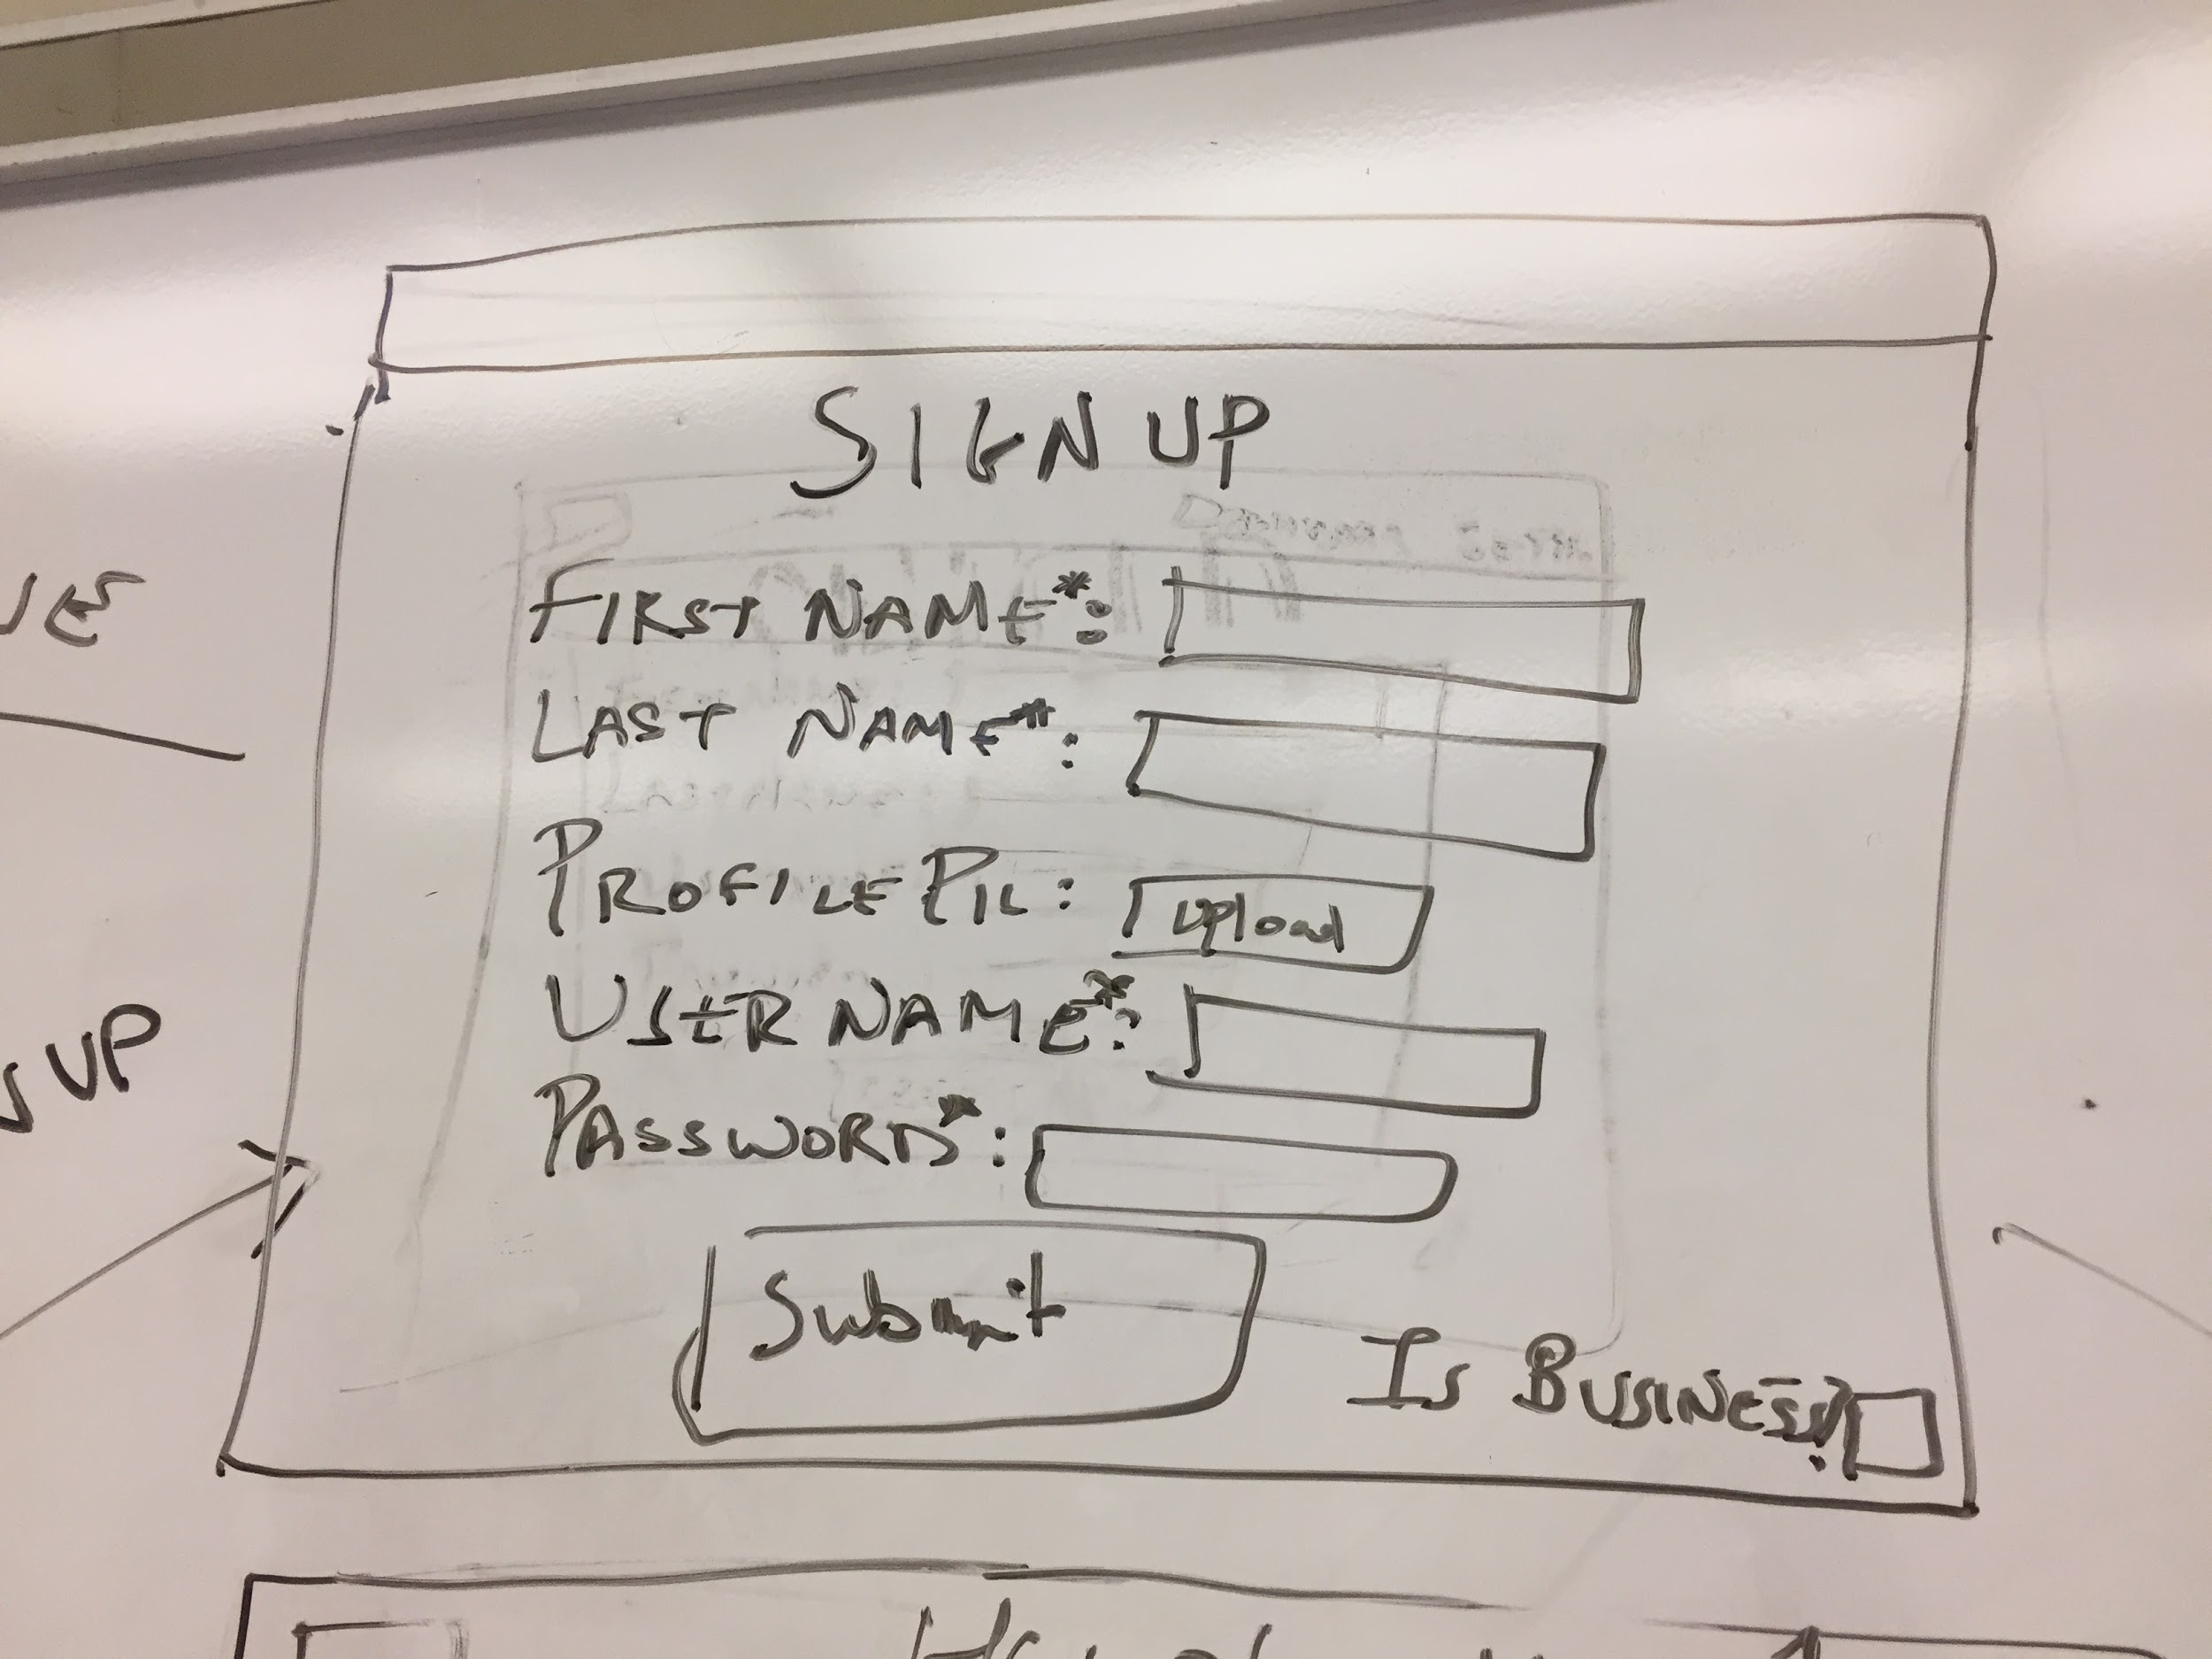 SIGN UP
FIRST NAME*:
LAST NAME*:
PROFILE PIC: upload
USER NAME*:
PASSWORD*:
Submit
IS BUSINESS?
UP